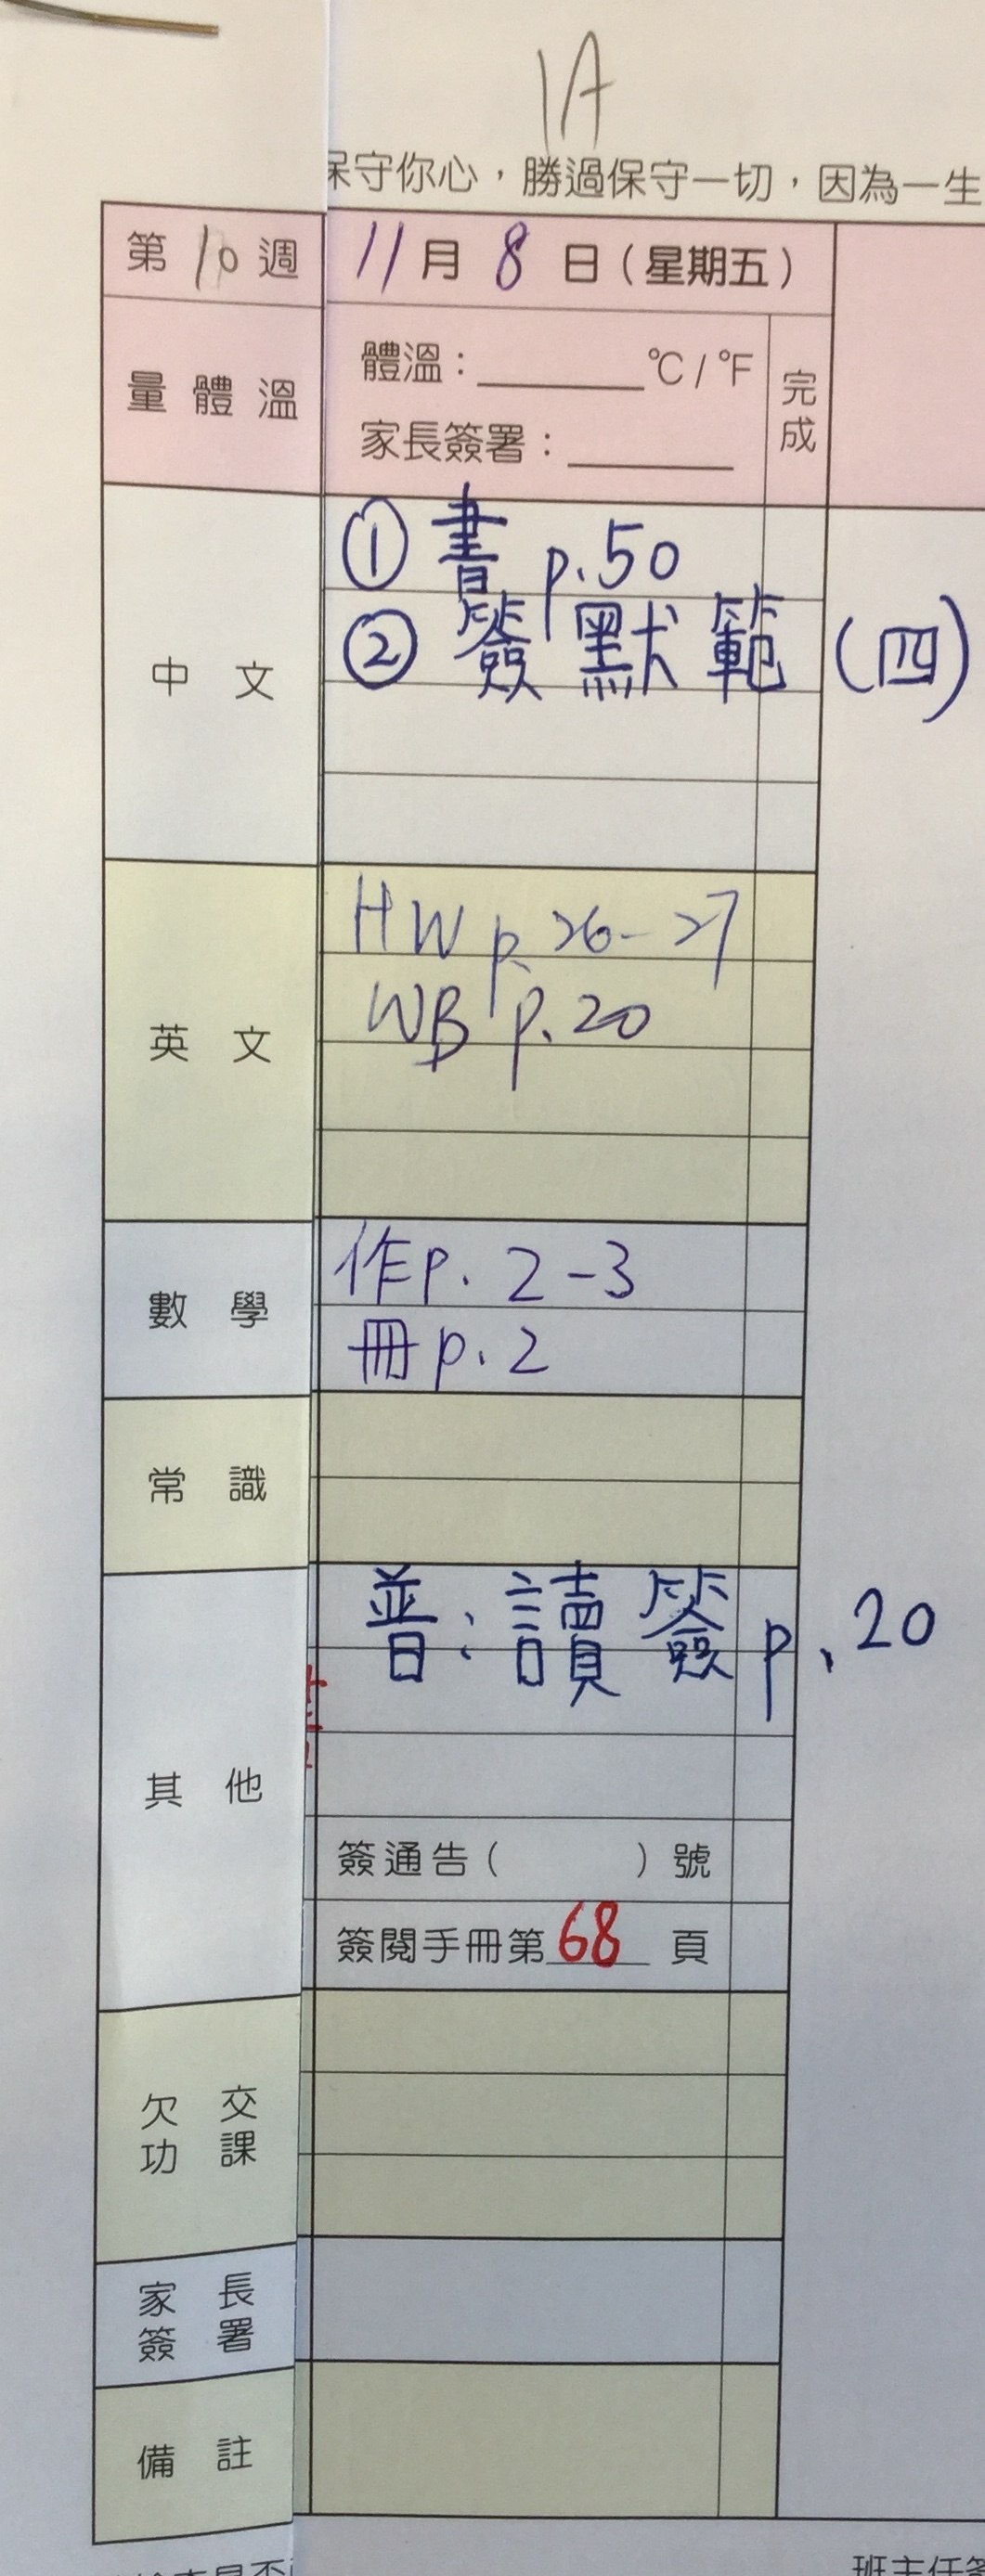 1A
保守你心，勝過保守一切，因為一生
第 10 週 11 月 8 日（星期五）
量體溫
體溫：______ °C / °F
家長簽署：______
完成
中文
① 書 p.50
② 簽默範（四）
英文
HW p. 26-27
WB p. 20
數學
作 p. 2-3
冊 p. 2
常識
其他
普：讀簽 p.20
簽通告（ ）號
簽閱手冊第 68 頁
欠交
功課
家長
簽署
備註
班主任簽